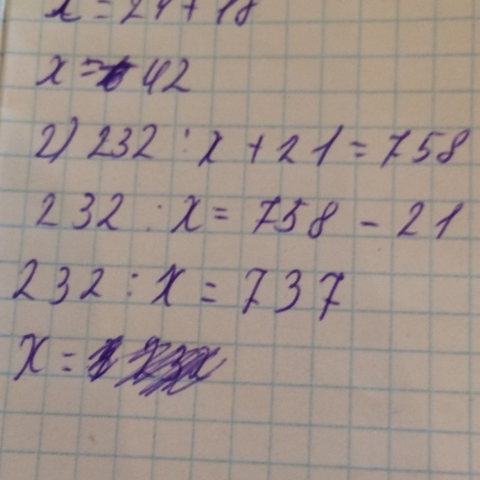 x = 24 + 18
x = 42
2) 232 : x + 21 = 758
232 : x = 758 - 21
232 : x = 737
x =